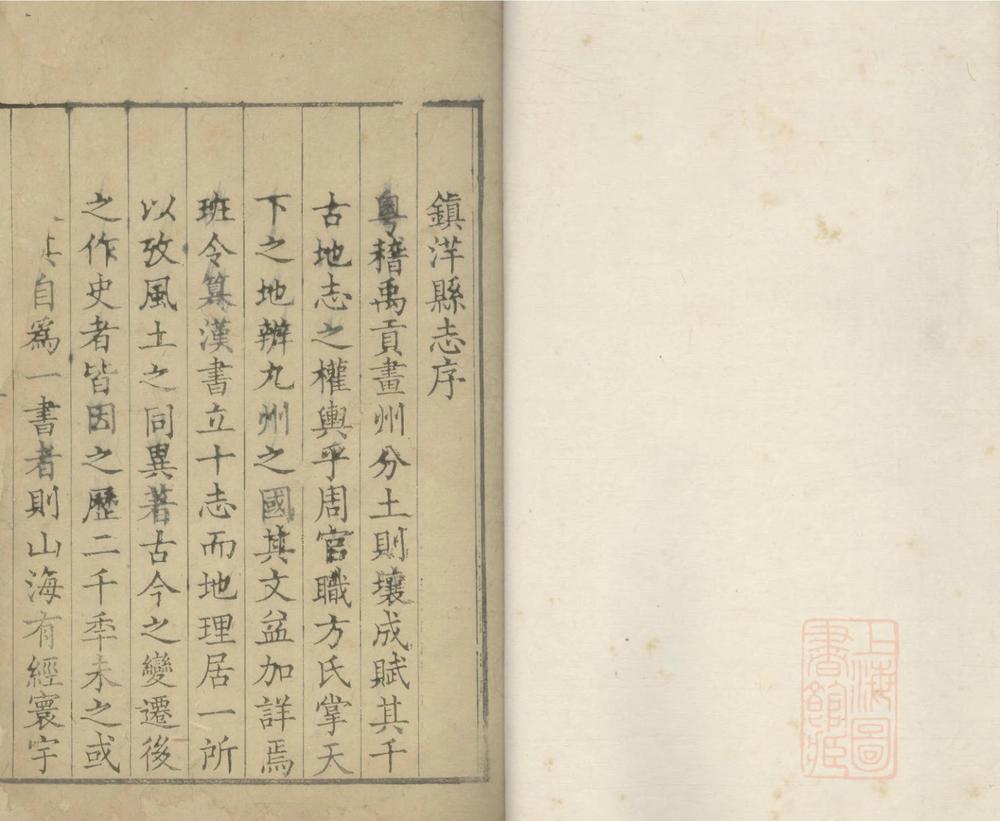 鎮洋縣志序
粵稽禹貢畫州分土則壤成賦其千
古地志之權輿乎周官職方氏掌天
下之地辨九州之國其文益加詳焉
班令纂漢書立十志而地理居一所
以攷風土之同異著古今之變遷後
之作史者皆因之歷二千秊未之或
自爲一書者則山海有經寰宇
上海圖
書館藏